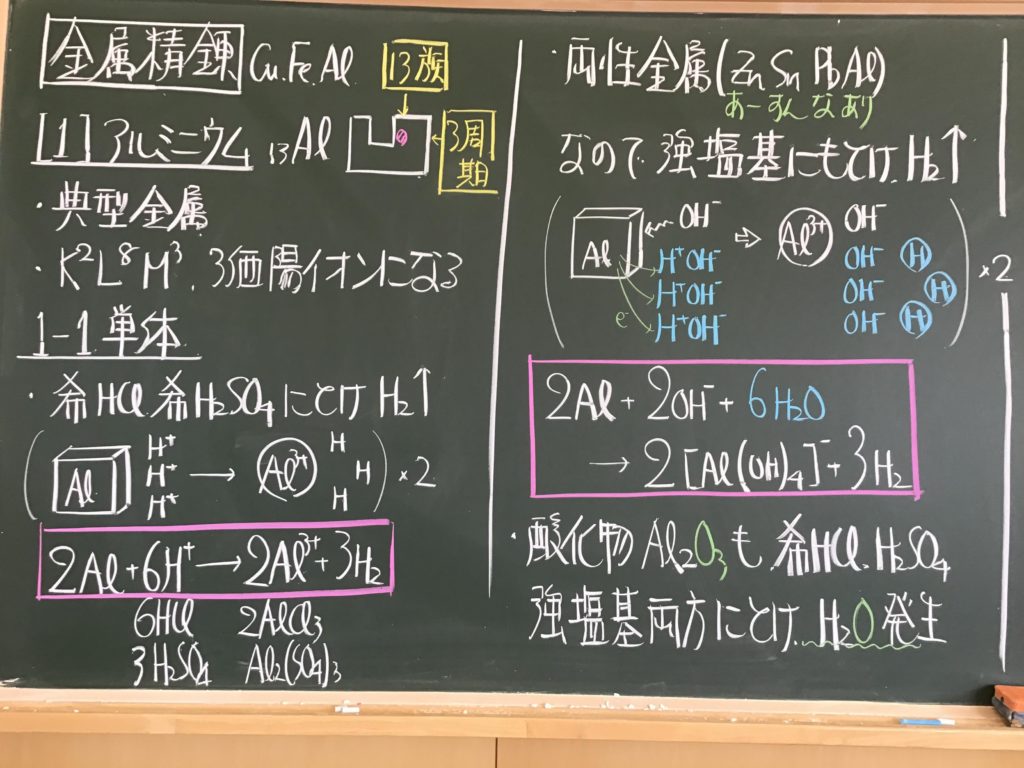 金属精錬 Cu.Fe.Al 13族
[1]アルミニウム ₁₃Al 3周期
・典型金属
・K²L⁸M³. 3価陽イオンになる
1-1 単体
・希HCl.希H₂SO₄にとけ H₂↑
Al H⁺ H⁺ H⁺ → Al³⁺ H H H ×2
2Al+6H⁺→2Al³⁺+3H₂
6HCl 2AlCl₃
3H₂SO₄ Al₂(SO₄)₃
・両性金属(Zn Sn Pb Al)
あーすんなあり
なので 強塩基にもとけ H₂↑
Al ← OH⁻ ⇨ Al³⁺ OH⁻
H⁺OH⁻ OH⁻ H
H⁺OH⁻ OH⁻ H ×2
e⁻ H⁺OH⁻ OH⁻ H
2Al+2OH⁻+6H₂O
→2[Al(OH)₄]⁻+3H₂
・酸化物Al₂O₃も希HCl.H₂SO₄
強塩基両方にとけ. H₂O発生